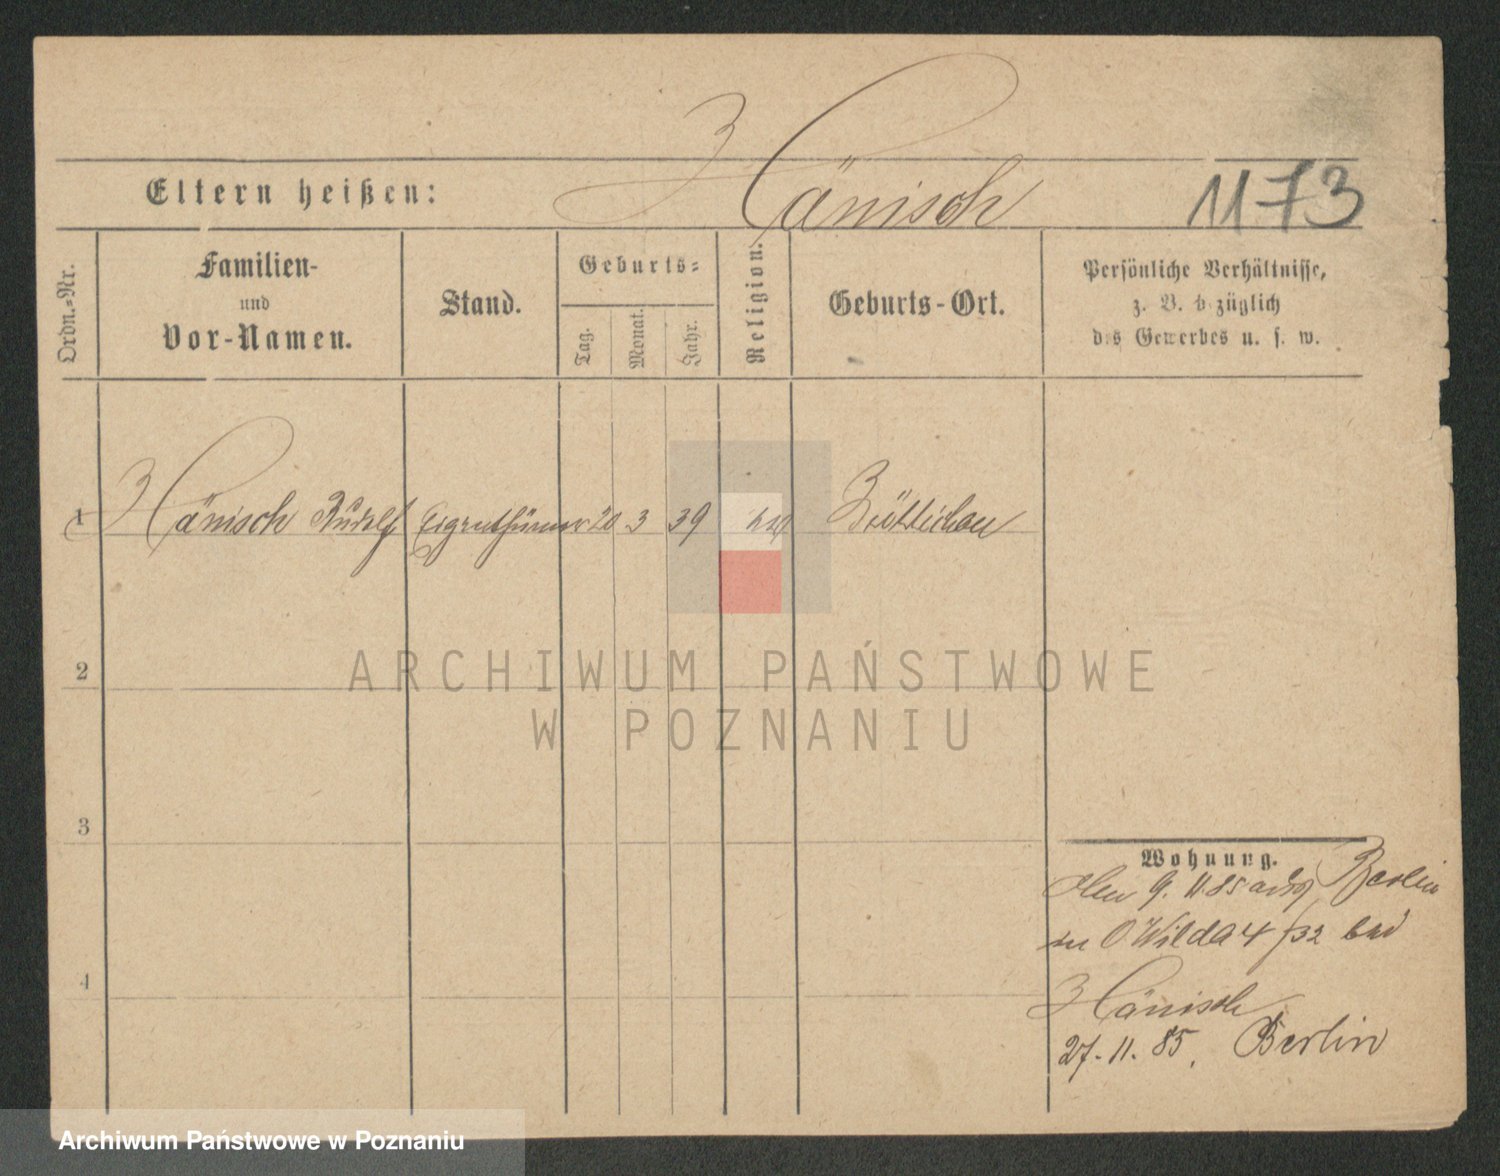 Hänisch
Eltern heißen:
1173
Ordn.-Nr.
Familien-
und
Vor-Namen.
Stand.
Geburts-
Tag.
Monat.
Jahr.
Religion.
Geburts-Ort.
Persönliche Verhältnisse,
z. B. bezüglich
des Gewerbes u. s. w.
1 Hänisch Rudolf Eigenthümer 20 3 39
2
ARCHIWUM PAŃSTWOWE
W POZNANIU
3
Wohnung.
Den 9. 11. 85 aus Berlin
O Wilda 4/32 bei
4
Hänisch
27. 11. 85. Berlin
Archiwum Państwowe w Poznaniu